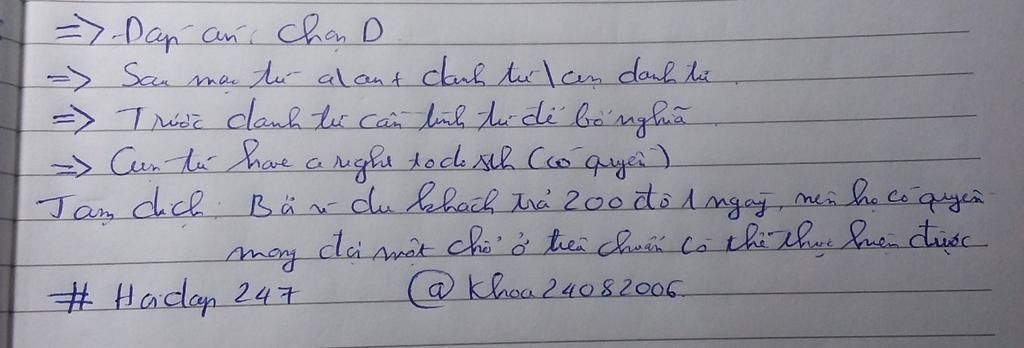 => Đáp án: Chọn D
=> Sau mạo từ a/an + danh từ/cụm danh từ
=> Trước danh từ cần tính từ để bổ nghĩa
=> Cụm từ have a right to do sth (có quyền)
Tạm dịch: Bởi vì du khách trả 200 đô 1 ngày, nên họ có quyền
mong đợi một chỗ ở tiêu chuẩn có thể thực hiện được
# Hoidap 247 @Khoa24082006